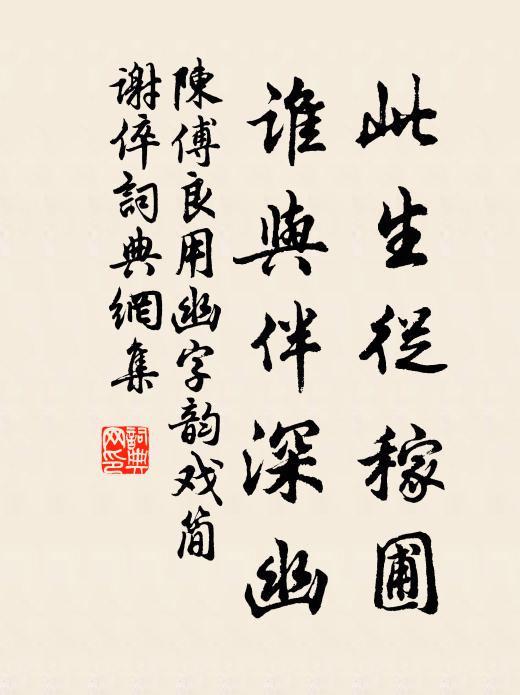 此生從稼圃
誰與伴深幽
陳傅良用幽字韵戏简
谢倅詞典網集
詞典網印